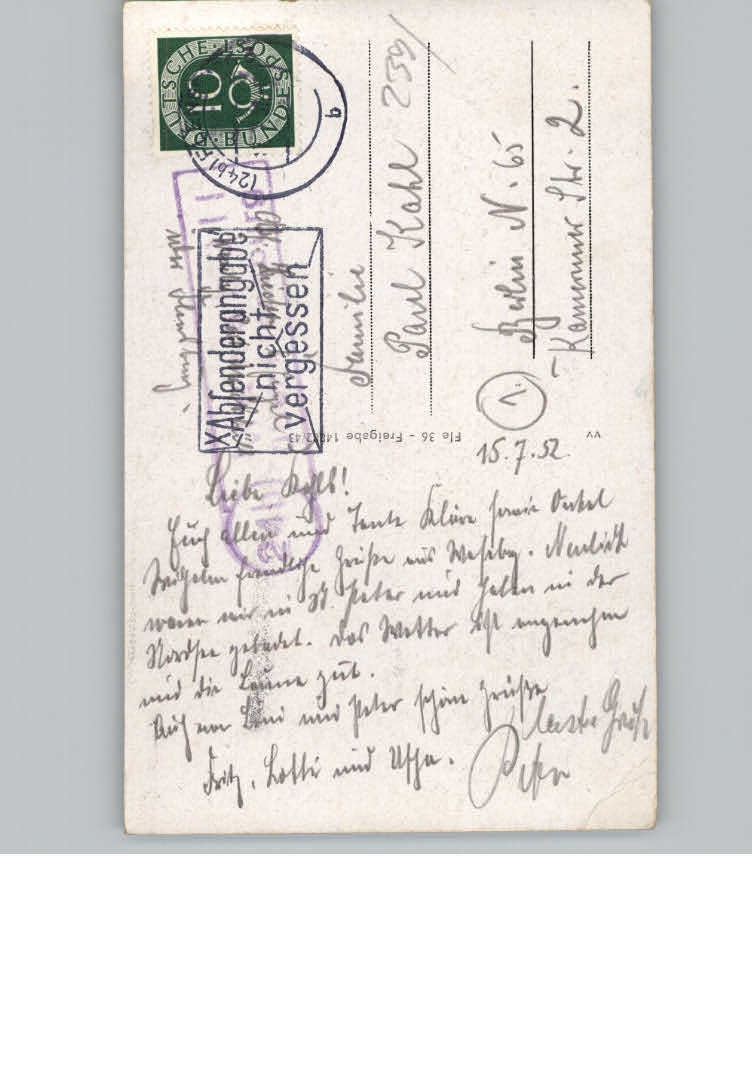 DEUTSCHE BUNDESPOST
10
(24b)
b
Absenderangabe
nicht
vergessen
(24b)
Familie
Paul Kahl
Berlin N. 65
Kameruner Str. 2.
1.
Fle 36 - Freigabe
vv
15.7.52.
Liebe Kahls!
Euch allen und Tante Kläre sowie Onkel
Wilhelm freundliche Grüße aus Wesseby. Neulich
waren wir in St. Peter und haben in der
Nordsee gebadet. Das Wetter ist angenehm
und die Laune gut.
Auch von und Peter schöne Grüße
Fritz, Lotte und
Grüße
Peter